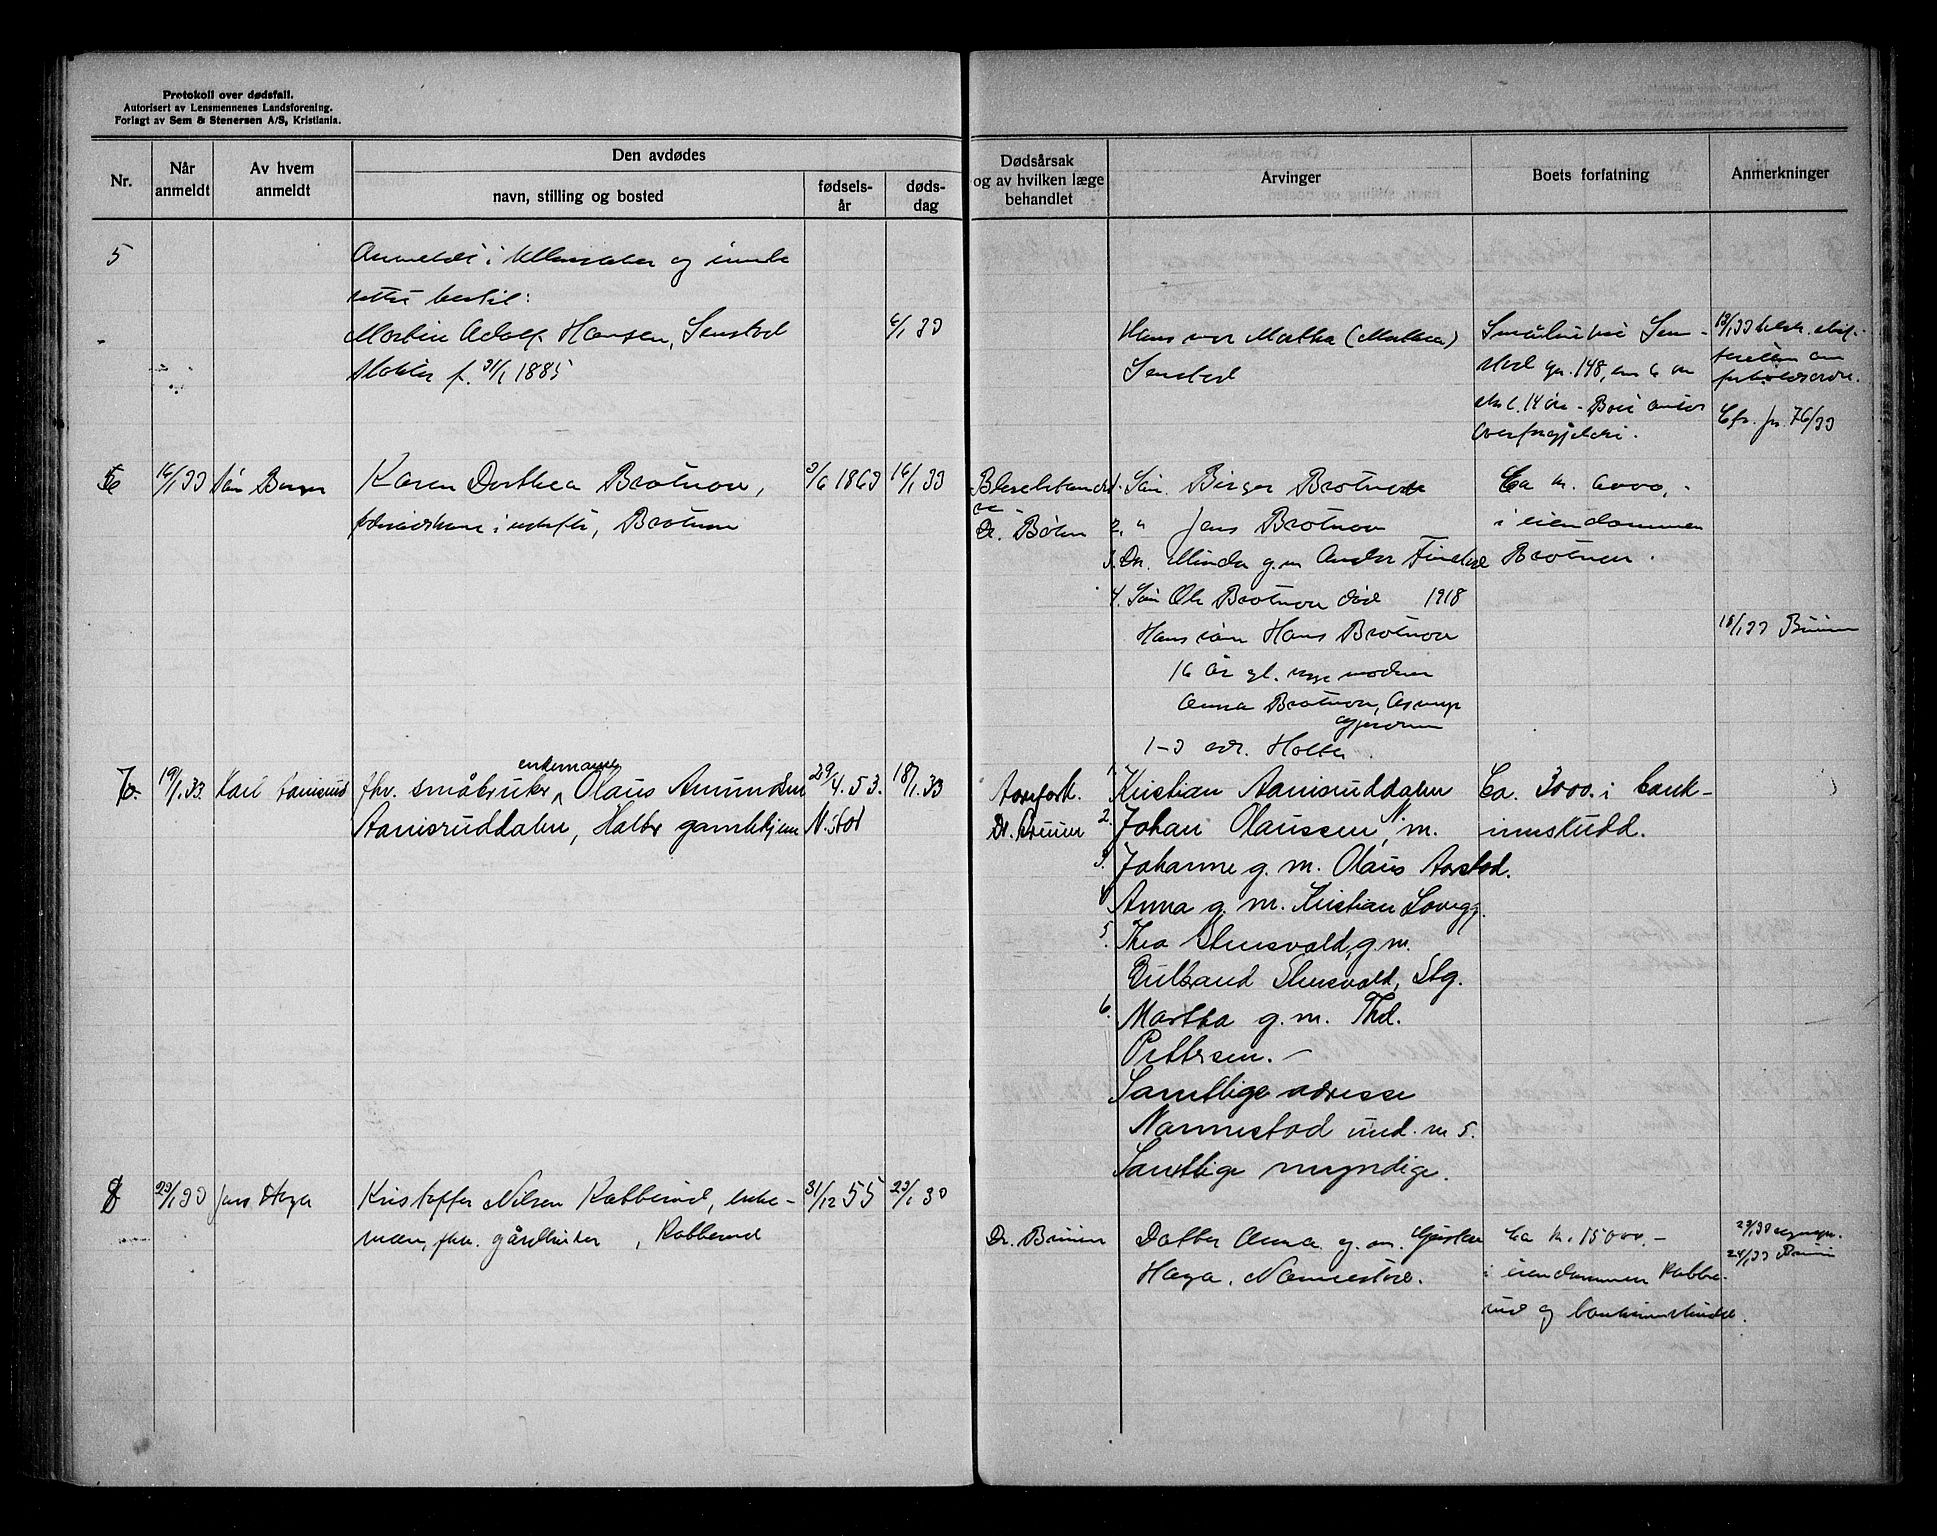 Protokoll over dødsfall.
Autorisert av Lensmennenes Landsforening.
Forlagt av Sem & Stenersen A/S, Kristiania.
Nr.
Når anmeldt
Av hvem anmeldt
Den avdødes
navn, stilling og bosted
fødsels-
år
døds-
dag
Dødsårsak
og av hvilken læge
behandlet
Arvinger
Boets forfatning
Anmerkninger
5
Anmeldt i Ullensaker og
Martin Adolf Hansen, Senstad
f. 31/1 1885
6/1 33
Martha (Mathea)
Senstad
Småbruket Sen-
stad gn. 148, bn 6 av
skl. 14 øre - Boet antas
overforgjeldet.
Cfr. jr. 76/33
6
16/1 33
Karen Dorthea Brotnov,
Brotnov
3/6 1863
16/1 33
Dr. Bøhn
1. Søn Birger Brotnov
2. " Jens Brotnov
3. Dr. Minda g.m. Anders Finstad
4. Søn Ole Brotnov død 1918
Hans søn Hans Brotnov
16 år gl. moderen
Anna Brotnov,
Gjerdrum
1-3 adr. Holter.
Ca kr. 6000,-
i eiendommen
Brotnov.
18/1 33 Bruun
7
19/1.33.
Karl Aamisrud
fhv. småbruker, enkemann Olaus Amundsen
Aamisruddalen, Holter gamlehjem N.stad
29/4.53.
18/1.33
Dr. Bruun
1. Kristian Aamisruddalen
2. Johan Olaussen, N.m.
3. Johanne g. m. Olaus Aarstad.
4. Anna g. m. Kristian Lovegg.
5. Thea Stensvald, g.m.
Gulbrand Stensvald, Stg.
6. Martha g.m. Thd.
Pettersen. -
Samtlige adresse
Nannestad und. nr 5.
Samtlige myndige.
Ca. 3000. i bank-
innskudd.
8
23/1 33
Jens Haga
Kristoffer Nilsen Rabberud, enke-
mann, fhv. gårdbruker, Rabberud
31/12 55
23/1 33
Dr. Bruun
Datter Anna g. m. Gustav
Haga, Nannestad.
Ca kr. 15000.-
i eiendommen Rabbe-
rud og bankinnskudd.
24/1 33 Bruun